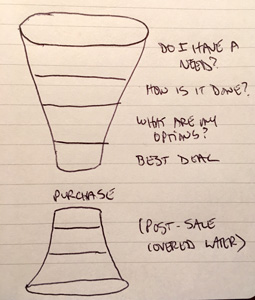 DO I HAVE A
NEED?
HOW IS IT DONE?
WHAT ARE MY
OPTIONS?
BEST DEAL
PURCHASE
(POST-SALE
COVERED LATER)